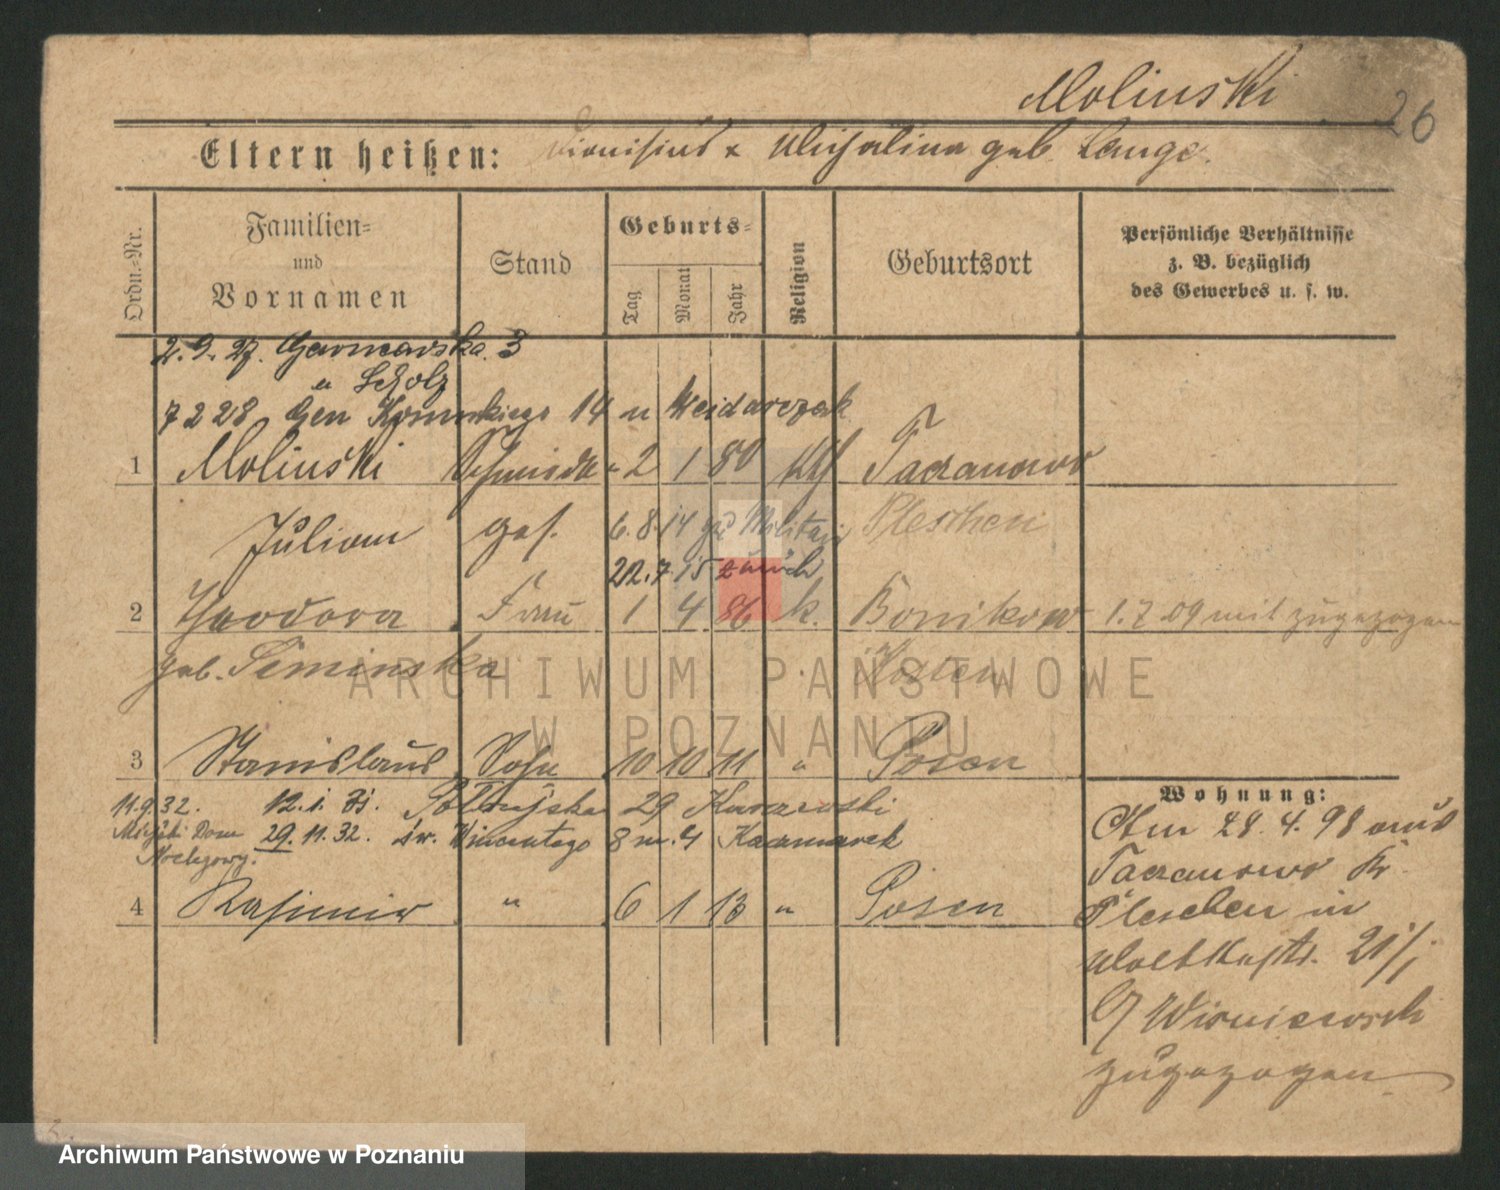 Molinski
26
Eltern heißen: Dionisius & Michalina geb. Lange.
Ordn.-Nr.
Familien-
und
Vornamen
Stand
Geburts-
Tag
Monat
Jahr
Religion
Geburtsort
Persönliche Verhältnisse
z. B. bezüglich
des Gewerbes u. s. w.
2.9.27. 3
u Scholz
7 2 28 Gen 14 u Weidarczak
1 Molinski Schmiede- 2 1 80 kth Taczanowo
Julian ges. 6.8.14 zu Militair Pleschen
22.7.15 zurück
2 Theodora Frau 1 4 86 k. Bonikowo 1.7.09 mit zugezogen
geb. Siminska Kosten
3 Stanislaus Sohn 10 10 11 " Posen
11.9.32. 12.1.31. 29
Miejski Dom 29.11.32. św. Wincentego 8 m. 4 Kaczmarek
Noclegowy.
4 Kasimir " 6 1 13 " Posen
Wohnung:
Am 28.4.98 aus
Taczanowo Kr.
Pleschen in
21/I
b/ Wisniewski
zugezogen
ARCHIWUM PAŃSTWOWE
W POZNANIU
Archiwum Państwowe w Poznaniu